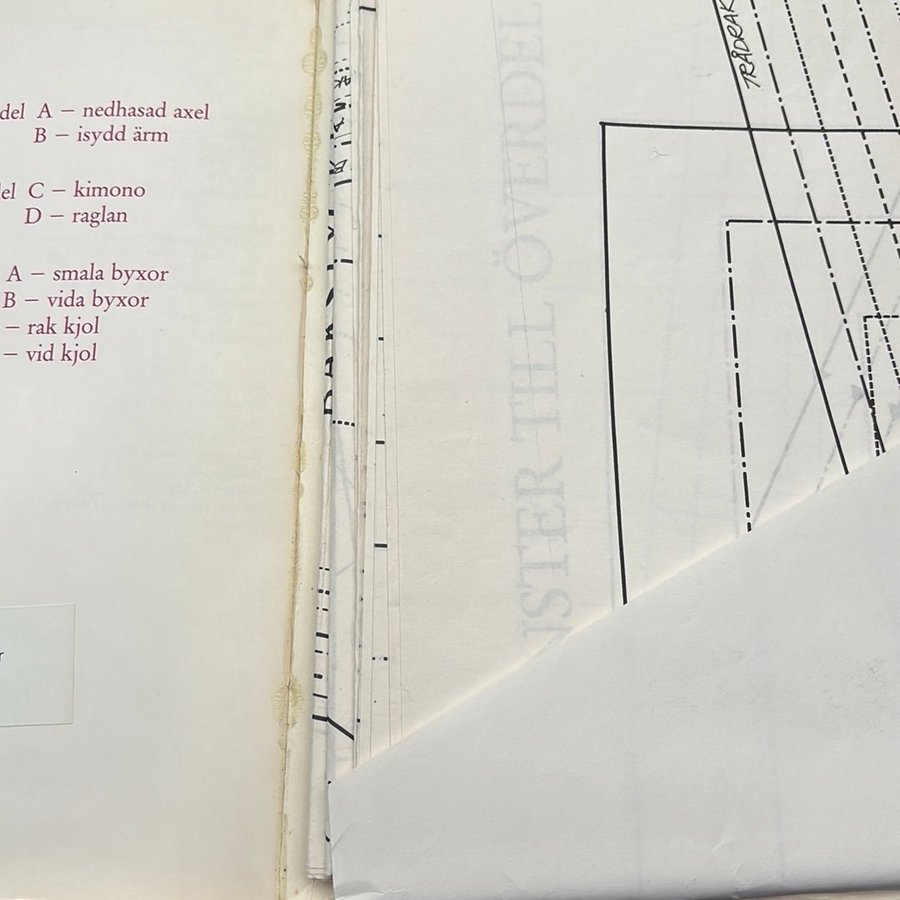 del A – nedhasad axel
B – isydd ärm
el C – kimono
D – raglan
A – smala byxor
B – vida byxor
– rak kjol
– vid kjol
r
TRÅDRAK
NSTER TILL ÖVERDEL